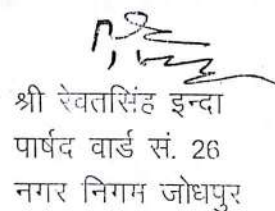 श्री रेवतसिंह इन्दा
पार्षद वार्ड सं. 26
नगर निगम जोधपुर